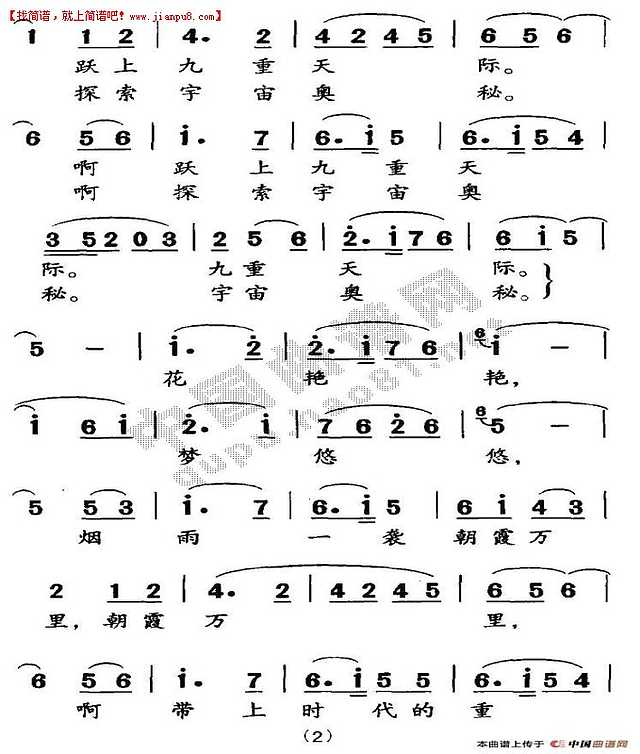 【找简谱，就上简谱吧！www.jianpu8.com】
1 1 1 2 4. 2 4 2 4 5 6 5 6
跃上九重天际。
探索宇宙奥秘。
6 5 6 i. 7 6. i 5 6. i 5 4
啊跃上九重天
啊探索宇宙奥
3 5 2 0 3 2 5 6 2. i 7 6 6 i 5
际。九重天际。
秘。宇宙奥秘。
5 － i. 2 2. i 7 6 6 i －
花艳艳，
i 6 i 2. i 7 6 2 6 6 5 －
梦悠悠，
5 5 3 i. 7 6. i 5 6 i 4 3
烟雨一袭朝霞万
2 1 2 4. 2 4 2 4 5 6 5 6
里，朝霞万里，
6 5 6 i. 7 6. i 5 5 6. i 5 4
啊带上时代的重
（2）
本曲谱上传于 中国曲谱网